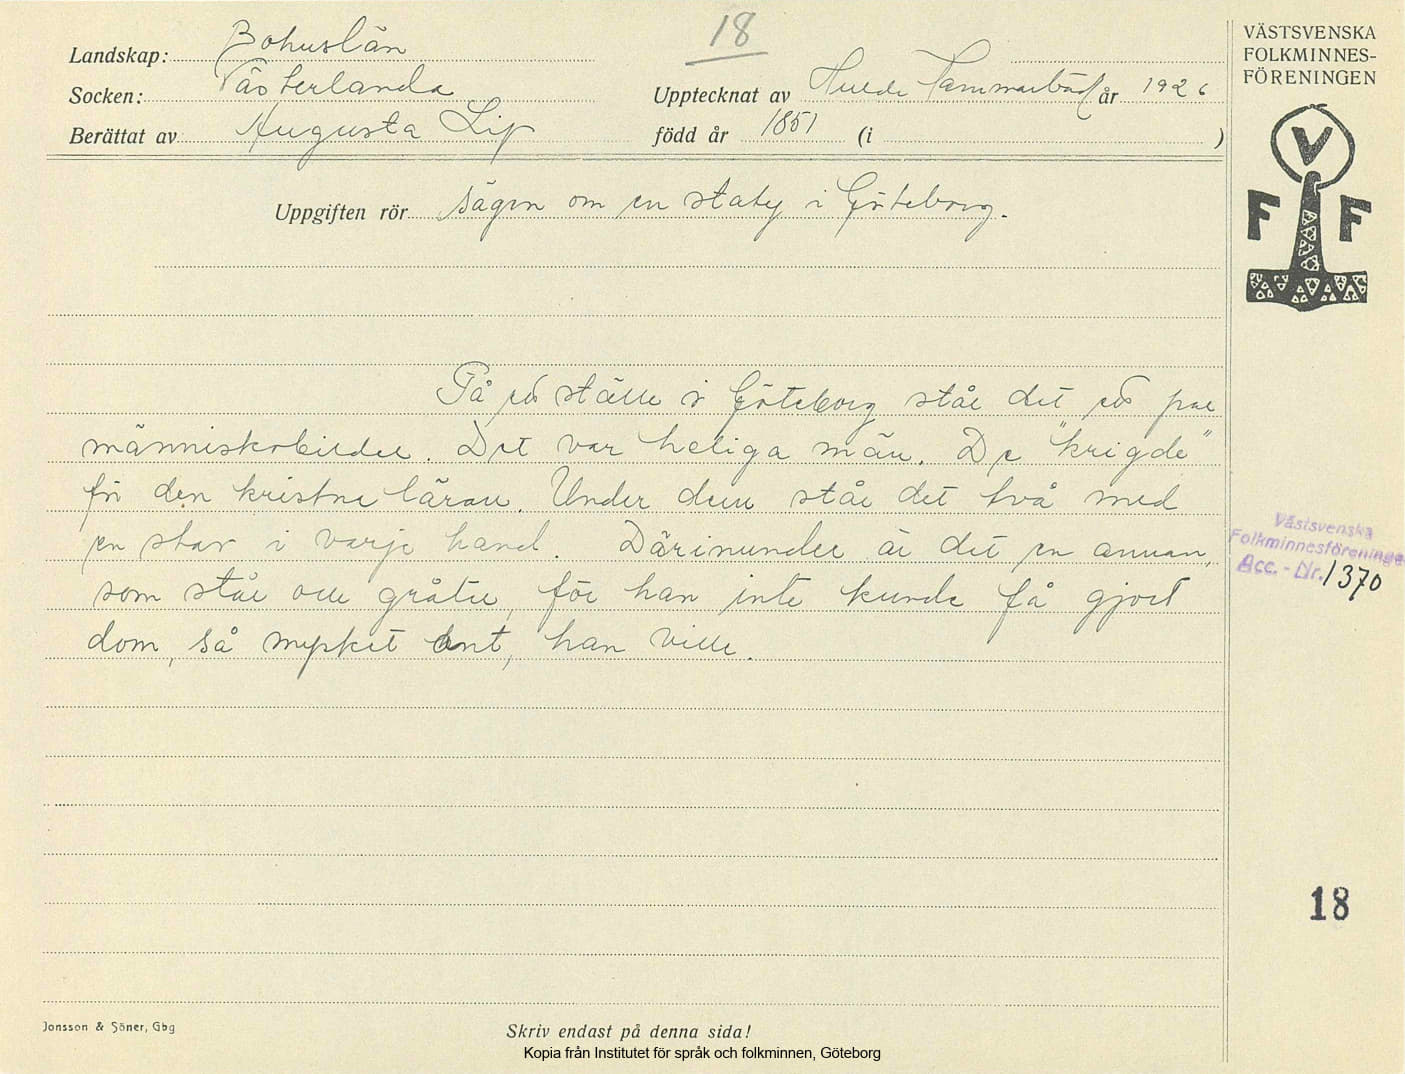 18
Landskap: Bohuslän
Socken: Västerlanda
Upptecknat av Hulda Hammarbäck år 1926
Berättat av Augusta Lip
född år 1851 (i )
Uppgiften rör Sägen om en staty i Göteborg.
På ett ställe i Göteborg står det ett par
människobilder. Det var heliga män. De "krigde"
för den kristna läran. Under dem står det två med
en stav i varje hand. Därinunder är det en annan,
som står och gråter, för han inte kunde få gjort
dom, så mycket ont, han ville.
VÄSTSVENSKA
FOLKMINNES-
FÖRENINGEN
V
F F
Västsvenska
Folkminnesföreningen
Acc. - Nr. 1370
18
Jonsson & Söner, Gbg
Skriv endast på denna sida!
Kopia från Institutet för språk och folkminnen, Göteborg